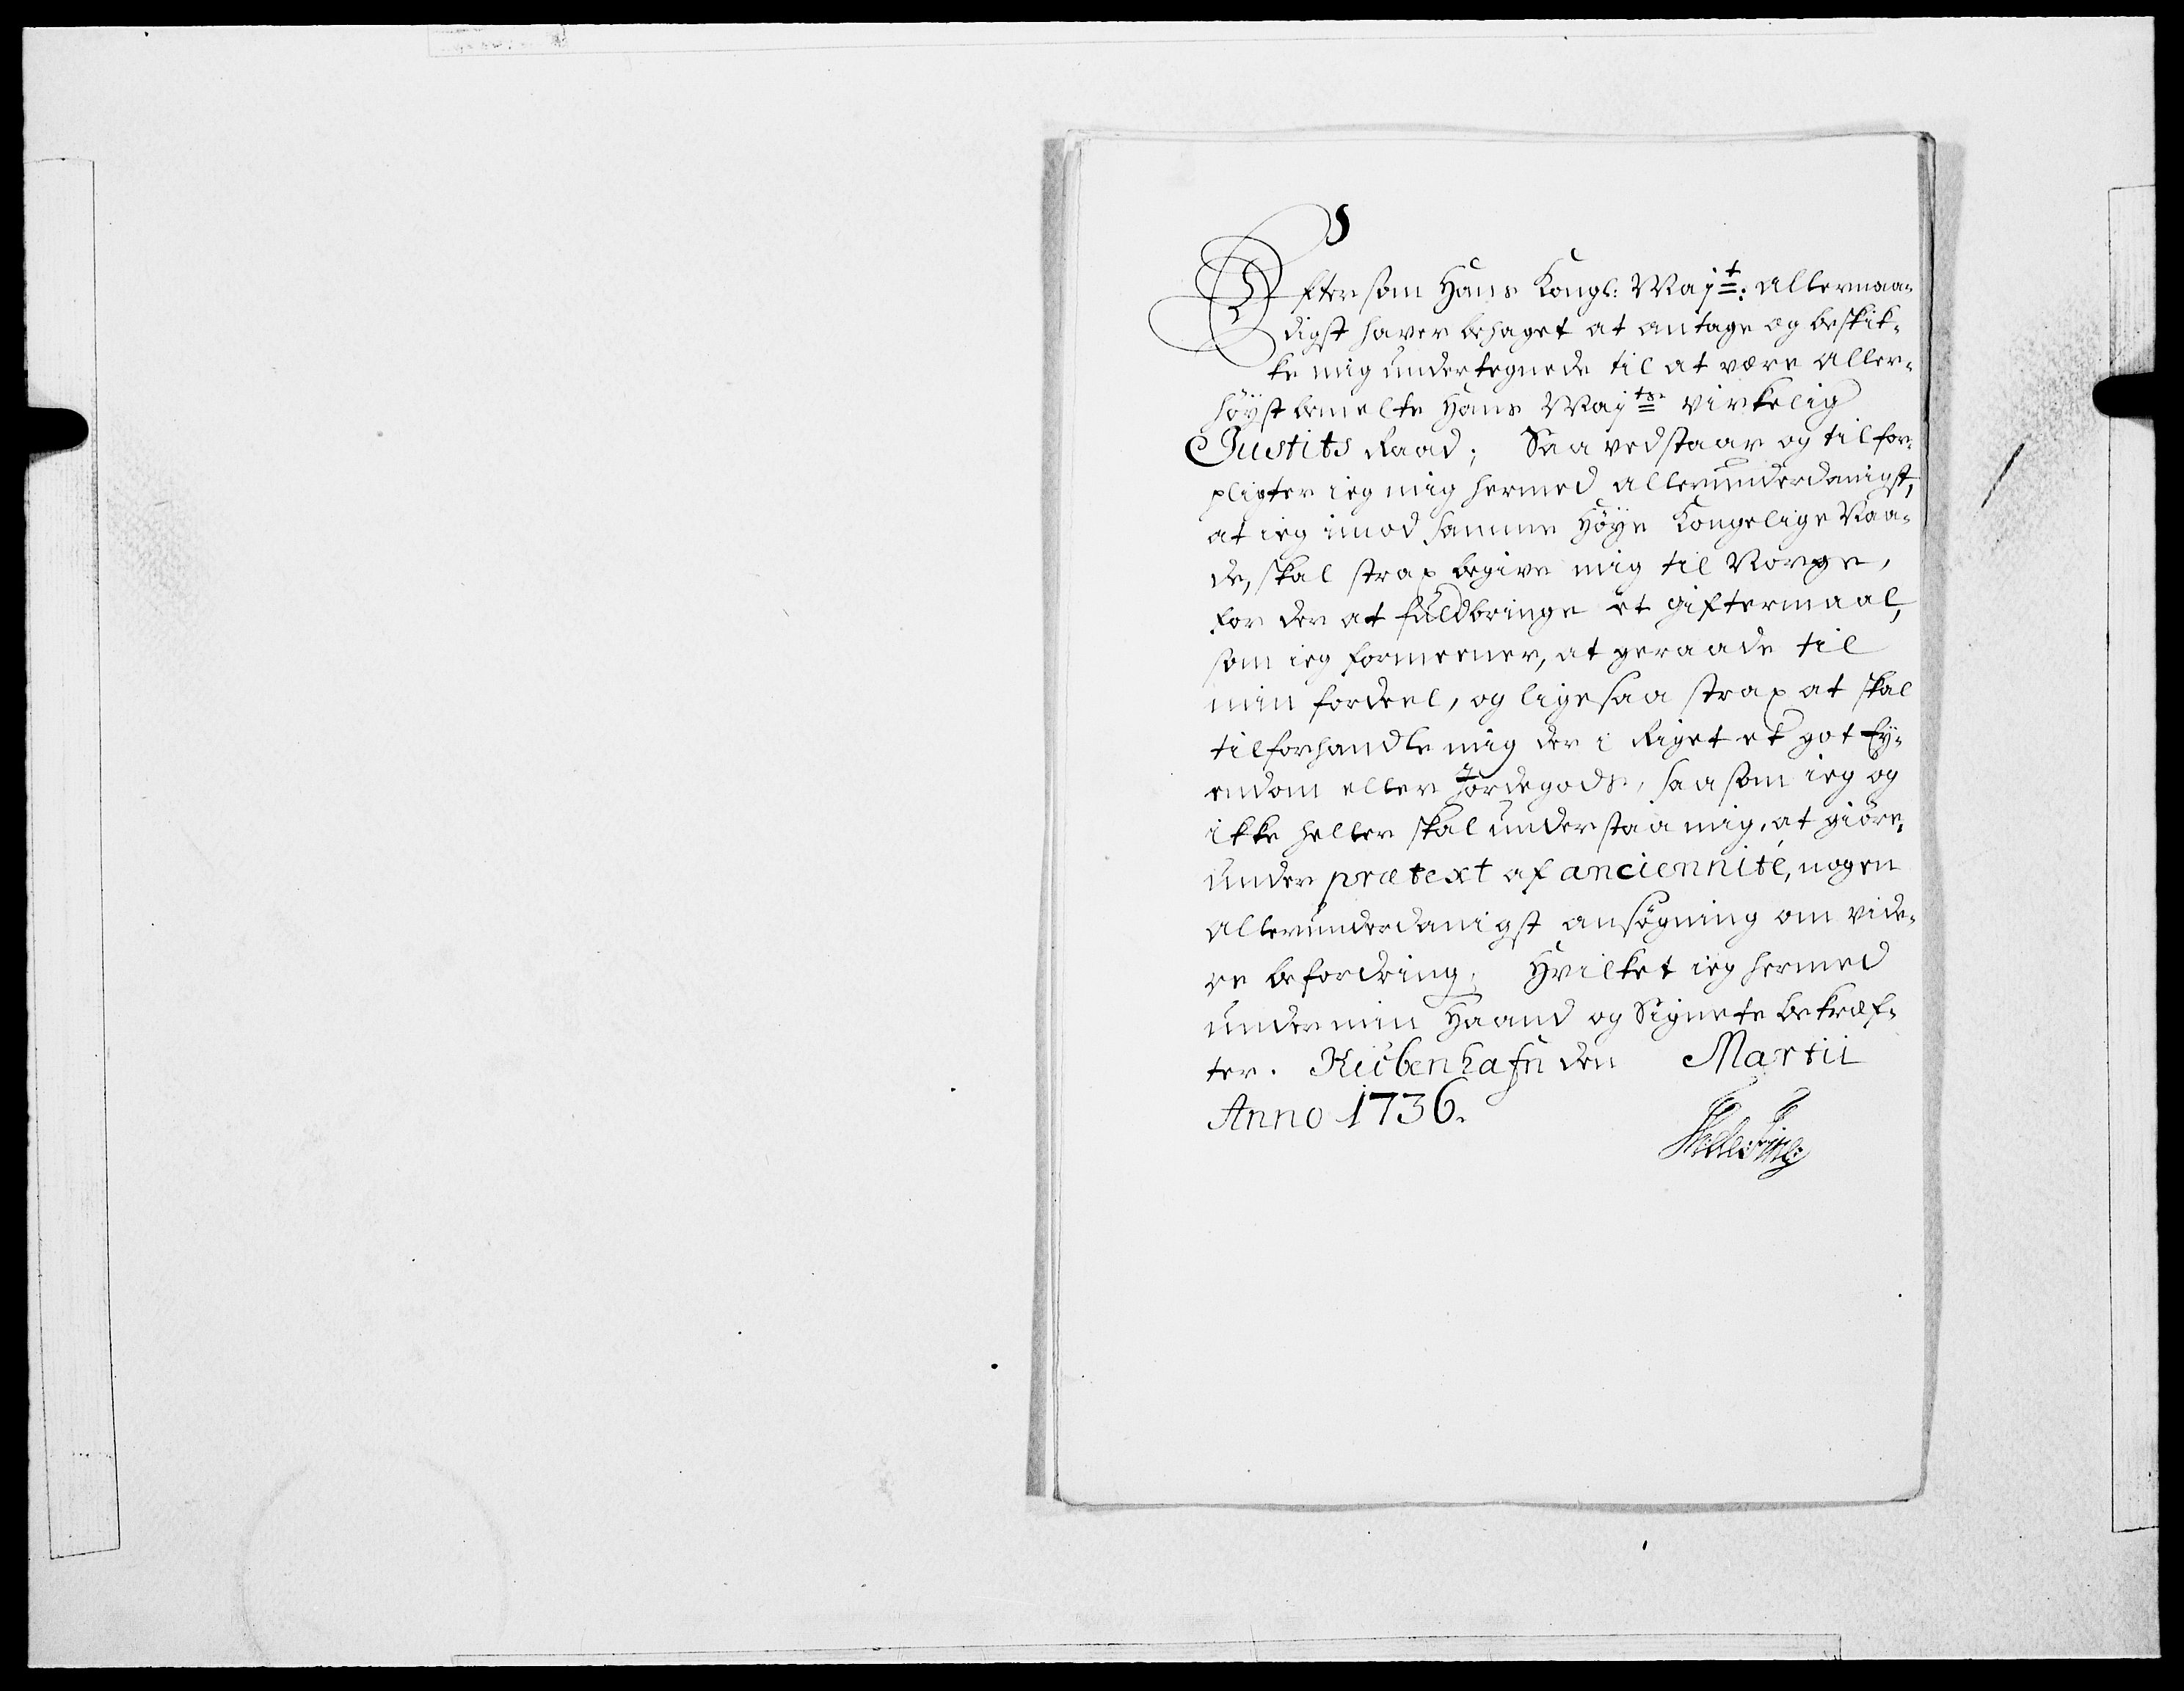 Eftersom Hans Kongl: Majt: Allernaa-
digst haver behaget at antage og beskik-
ke mig undertegnede til at være Aller-
høyst bemelte Hans Majts virkelig
Justits Raad; Saa vedstaar og tilfor-
pligter ieg mig hermed allerunderdanigst,
at ieg imod samme Høye Kongelige Naa-
de, skal strax begive mig til Norge,
for der at fuldbringe et giftermaal,
som ieg formeener, at geraade til
min fordeel, og ligesaa strax at skal
tilforhandle mig der i Riget et got Ey-
endom eller Jordegods, saasom ieg og
ikke heller skal understaa mig, at giøre,
under prætext af anciennité, nogen
allerunderdanigst ansøgning om vide-
re befordring; Hvilket ieg hermed
under min Haand og Signete bekræf-
ter. Kiöbenhafn den Martii
Anno 1736.